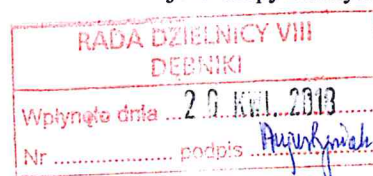 RADA DZIELNICY VIII
DĘBNIKI
Wpłynęło dnia ...2 0. KWI. 2018
Nr .................. podpis